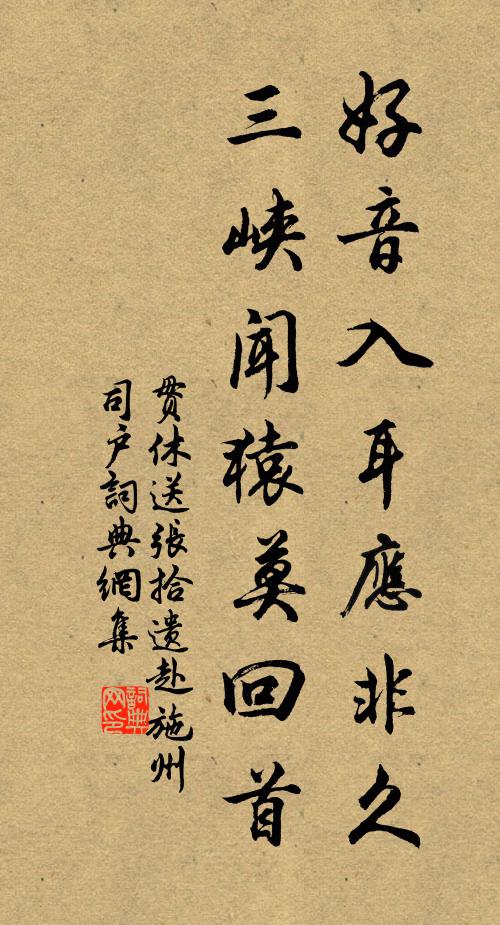 好音入耳應非久
三峽聞猿莫回首
貫休送張拾遺赴施州
司戶詞典網集
詞典網印